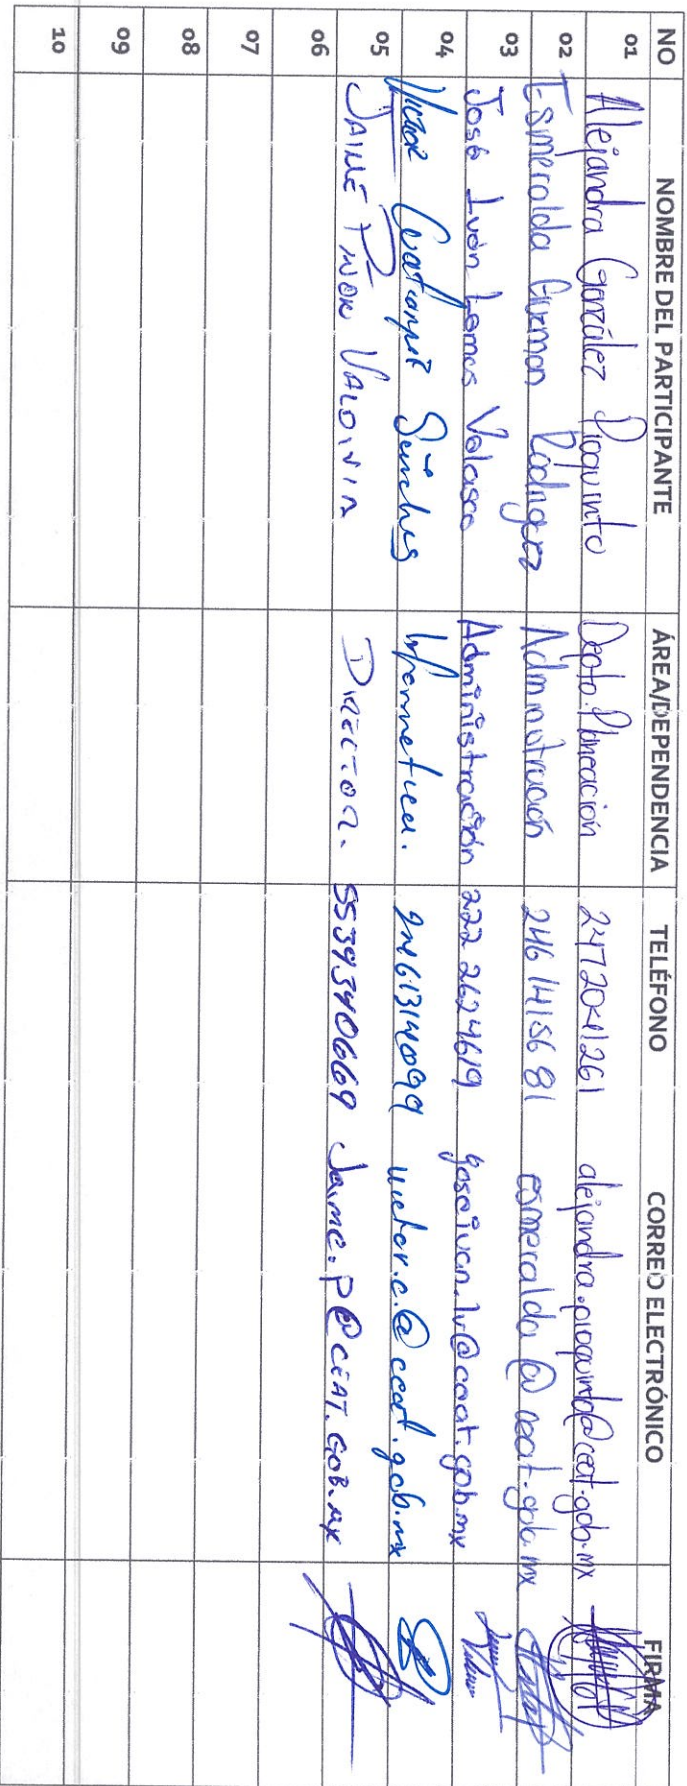 NO NOMBRE DEL PARTICIPANTE ÁREA/DEPENDENCIA TELÉFONO CORREO ELECTRÓNICO FIRMA
01 Alejandra González Pioquinto Depto. Planeación 2472041261 alejandra.pioquinto@ceat.gob.mx
02 Esmeralda Guzman Rodriguez Administración 246 1415681 esmeralda@ceat.gob.mx
03 José Iván Lemus Velasco Administración 222 2624619 joseivan.lv@ceat.gob.mx
04 Victor Coatonpit Sánchez Informatica. 2461314099 victor.c.@ceat.gob.mx
05 JAIME PIÑON VALDIVIA DIRECTOR. 5539340669 Jaime.P@CEAT.GOB.MX
06
07
08
09
10